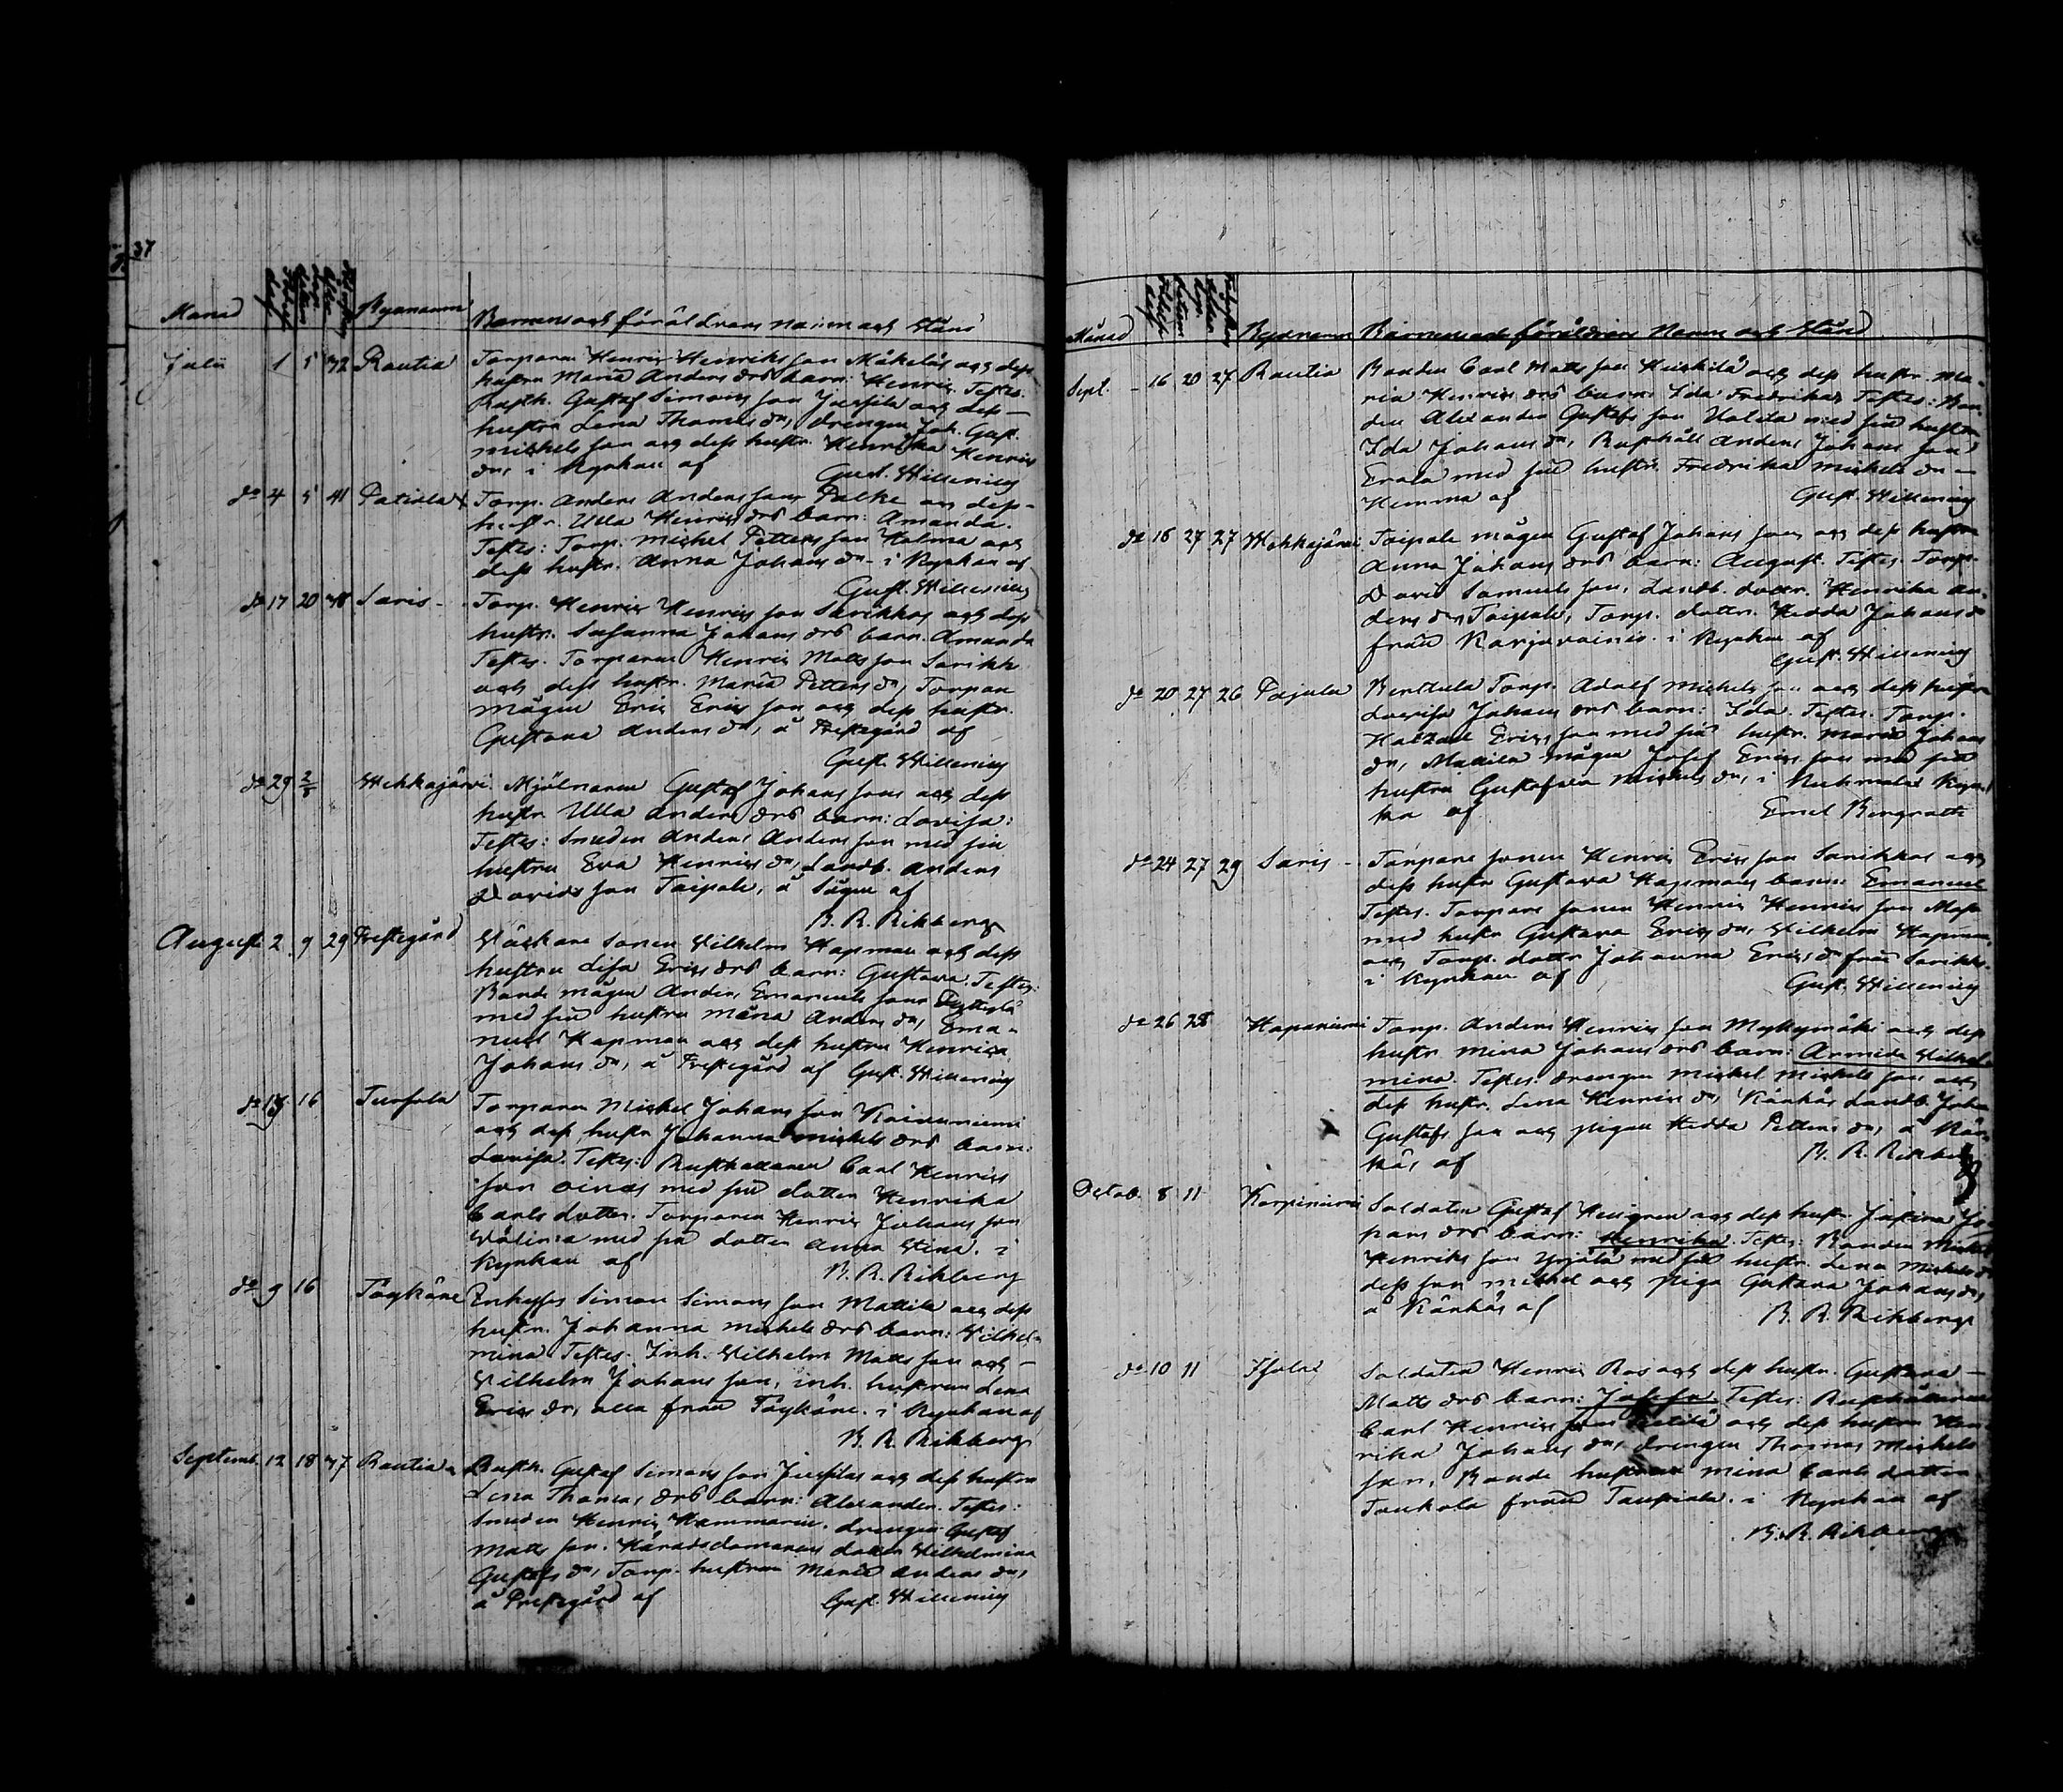 37
Månad Bynamn Barnens och föräldrars namn och stånd
Julii 1 5 32 Rautia Torparen Henric Henriks son Mäkeläs och dess
hustru Maria Anders drs barn: Henric. Testes:
Rusth. Gustaf Simons son och dess
hustru Lena Thomas dr, drengen Joh. Gust.
Michels son och dess hustr. Henrika Henrics
dr, i Kyrkan af Gust. Hillening
do 4 5 41 Torp. Anders Anders son Palke och dess
hustr. Ulla Henrics drs barn: Amanda.
Testes: Torp. Michel Petters son Kalma och
dess hustr. Anna Johans dr i Kyrkan af
Gust. Hillening
do 17 20 Saris Torp. Henric Henrics son Sarikkas och dess
hustr. Susanna Johans drs barn. Amanda
Testes. Torparen Henric Matts son Sarikk
och dess hustr. Maria Petters dr, Torpare
mågen Eric Erics son och dess hustr.
Gustava Anders dr, å Prestegård af
Gust. Hillening
do 29 2/8 Wehkajärvi Mjölnaren Gustaf Johans son och dess
hustr. Ulla Anders drs barn: Lovisa:
Testes: Smeden Anders Anders son med sin
hustru Eva Henrics dr, Landb. Anders
Davids son Taipale, å Sågen af
B. R. Rikberg
August 2 9 29 Prestegård Wilhelm Hapman och dess
hustru Lisa Erics drs barn: Gustava. Testes:
Bonde mågen Anders Emanuels son
med sin hustru Maria Anders dr, Ema-
nuel Hapman och dess hustru Henrica
Johans dr, å Prestegård af Gust. Hillening
do 16 Torparen Michel Johans son Koivuniemi
och dess hustr Johanna Michels drs barn:
Lovisa. Testes: Rusthållaren Carl Henrics
son Oinas med sin dotter Henrika
Carls dotter. Torparen Henric Johans son
med sin dotter Anna Stina. i
Kyrkan af B. R. Rikberg
do 9 16 Simon Simons son Mattila och dess
hustr. Johanna Michels drs barn: Wilhel-
mina. Testes. Inh. Wilhelm Matts son och
Wilhelm Johans son, inh. hustrun Lena
Erics dr, alla från i Kyrkan af
B. R. Rikberg
Septemb. 12 18 37 Rautia Rusth. Gustaf Simons son och dess hustru
Lena Thomas drs barn: Alexander. Testes:
Smeden Henric Hammarin, drengen Gustaf
Matts son. Häradsdomarens dotter Wilhelmina
Gustafs dr, Torp. hustrun Maria Anders dr,
å Prestegård af Gust. Hillening
Månad Bynamn Barnens och föräldrars Namn och stånd
Sept. 16 20 27 Rautia Bonden Carl Matts son Heikkilä och dess hustr. Ma-
ria Henrics drs barn: Ida Fredrika. Testes: Bon-
den Alexander Gustafs son med sin hustru
Ida Johans dr, Rusthåll. Anders Johans son
Erola med sin hustr. Fredrika Michels dr
Hemma af Gust. Hillening
do 16 27 27 Wehkajärvi Taipale mågen Gustaf Johans son och dess hustru
Anna Johans drs barn: August. Testes. Torp.
David Samuels son, Landb. dottr. Henrika An-
ders dr, Taipale, Torp. dottr. Hedda Johans dr
från Karjavainio i Kyrkan af
Gust. Hillening
do 20 27 26 Pajula Torp. Adolf Michels son och dess hustru
Lovisa Johans drs barn: Ida. Testes. Torp.
Erics son med sin hustr. Maria Johans
dr, Mattila mågen Josef Erics son med sin
hustru Gustafva Michels dr, i Kuhmalax Kyr-
ka af Emel Bergroth
do 24 27 29 Saris Torpare sonen Henric Erics son Sarikkas och
dess hustr Gustava Hapmans barn: Emanuel
Testes. Torpare sonen Henric Henrics son
med hustr Gustava Erics dr, Wilhelm Hapman,
och Torp. dottr Johanna Erics dr från Sarikka.
i Kyrkan af Gust. Hillening
do 26 28 Haapaniemi Torp. Anders Henrics son Myllymäki och dess
hustr. Mina Johans drs barn: Armida Wilhel-
mina. Testes: drengen Michel Michels son och
dess hustr. Lena Henrics dr, Landb. Johan
Gustafs son och pigan Hedda Petters dr, å
af B. R. Rikberg
Octob. 8 11 Korpiniemi Soldaten Gustaf och dess hustr. Justina Jo-
hans drs barn: Henrika. Testes: Bonden Michel
Henriks son Yrjölä med sin hustr. Lena Michels dr
dess son Michel och piga Gustava Johans dr,
å af B. R. Rikberg
do 10 11 Soldaten Henric Ros och dess hustr. Gustava
Matts drs barn: Josefa. Testes: Rusthållaren
Carl Henrics son och dess hustru Hen-
rika Johans dr, drengen Thomas Michels
son, Bonde hustrun Mina Carls dotter
Toukola från i Kyrkan af
B. R. Rikberg